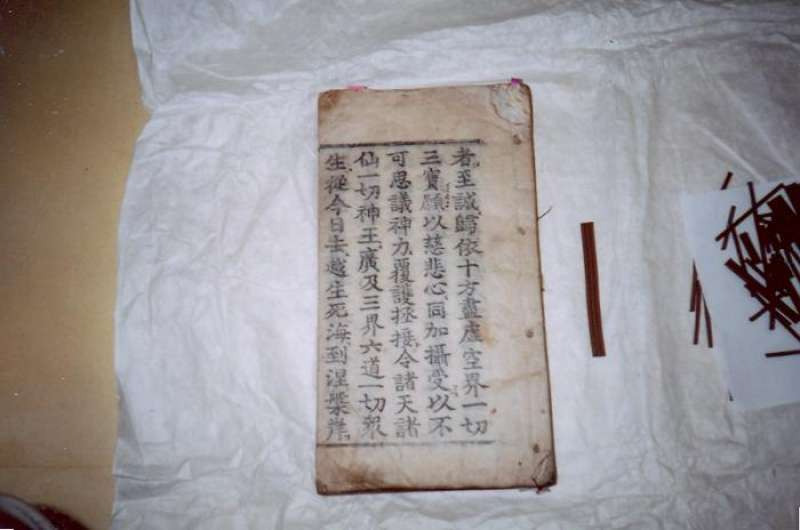 者至誠歸依十方盡虛空界一切
三寶願以慈悲心同加攝受以不
可思議神力覆護拯接令諸天諸
仙一切神王廣及三界六道一切衆
生從今日去越生死海到涅槃岸